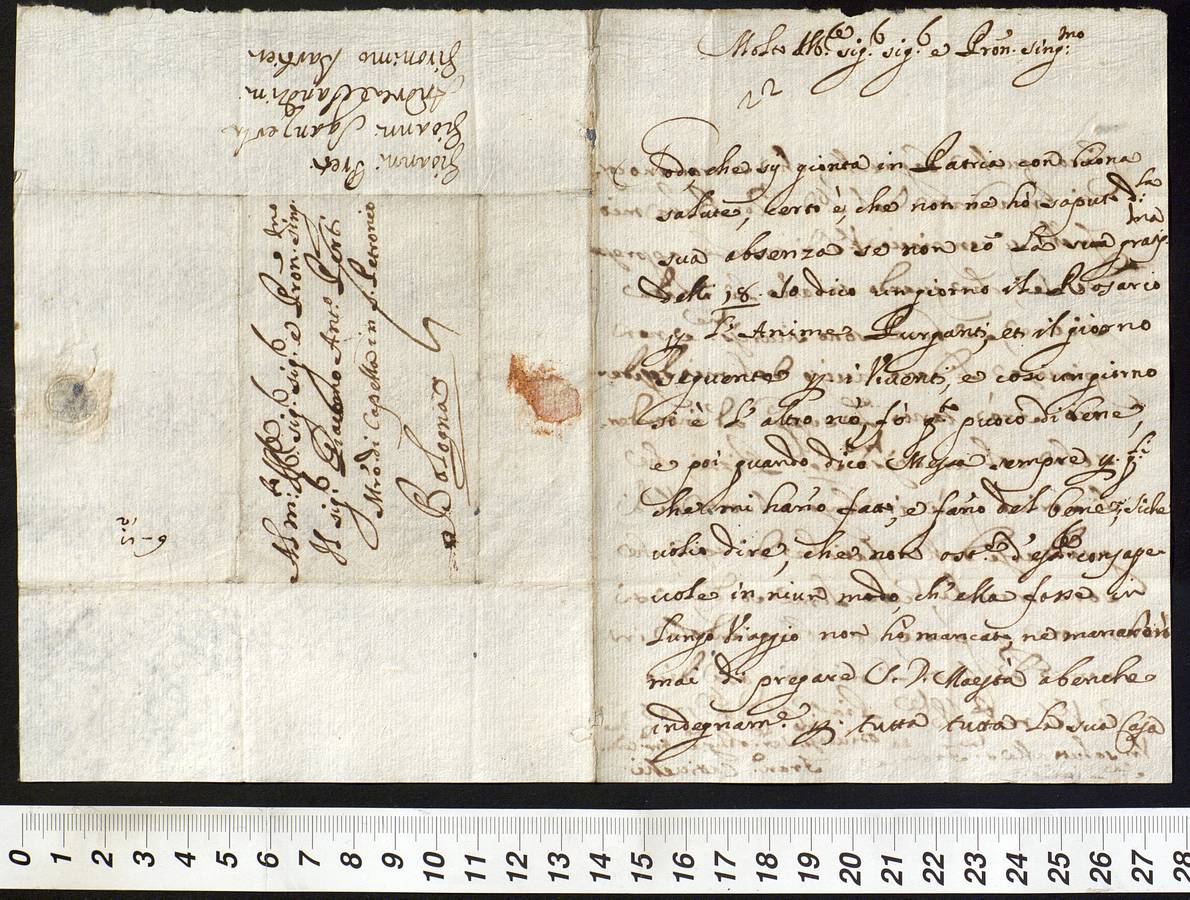 Gioanni Pret
Gioanni
Andrea Vandini
Gironimo Barbier
Al mio Sig. Sig. e Pron. Sing.mo
Il Sig. Giacomo Ant.o Perti
Mro di Capella in S. Petronio
Bologna
Molto Ill.e sig. sig. e Pron. sing:mo
Godo, che sij gionta in Patria con buona
salute, certo è, che non ne hò saputo di la
sua absenza se non cō la sua gratma
delli 18. Io dico un giorno il Rosario
p l'Anime Purganti, et il giorno
seguente p i Viventi, e così un giorno
sì è l'altro nò, fò q.to puoco di bene,
e poi quando dico Messa sempre p.
che mi hano fatti, e fano del bene, siche
volio dire, che non ost.e d'esser consape-
vole in niun modo, ch'ella fosse in
lungo Viaggio non hò mancato, ne mancherò
mai di pregare S. D. Maestà abenche
indegnam.e p. tutta tutta la sua Casa